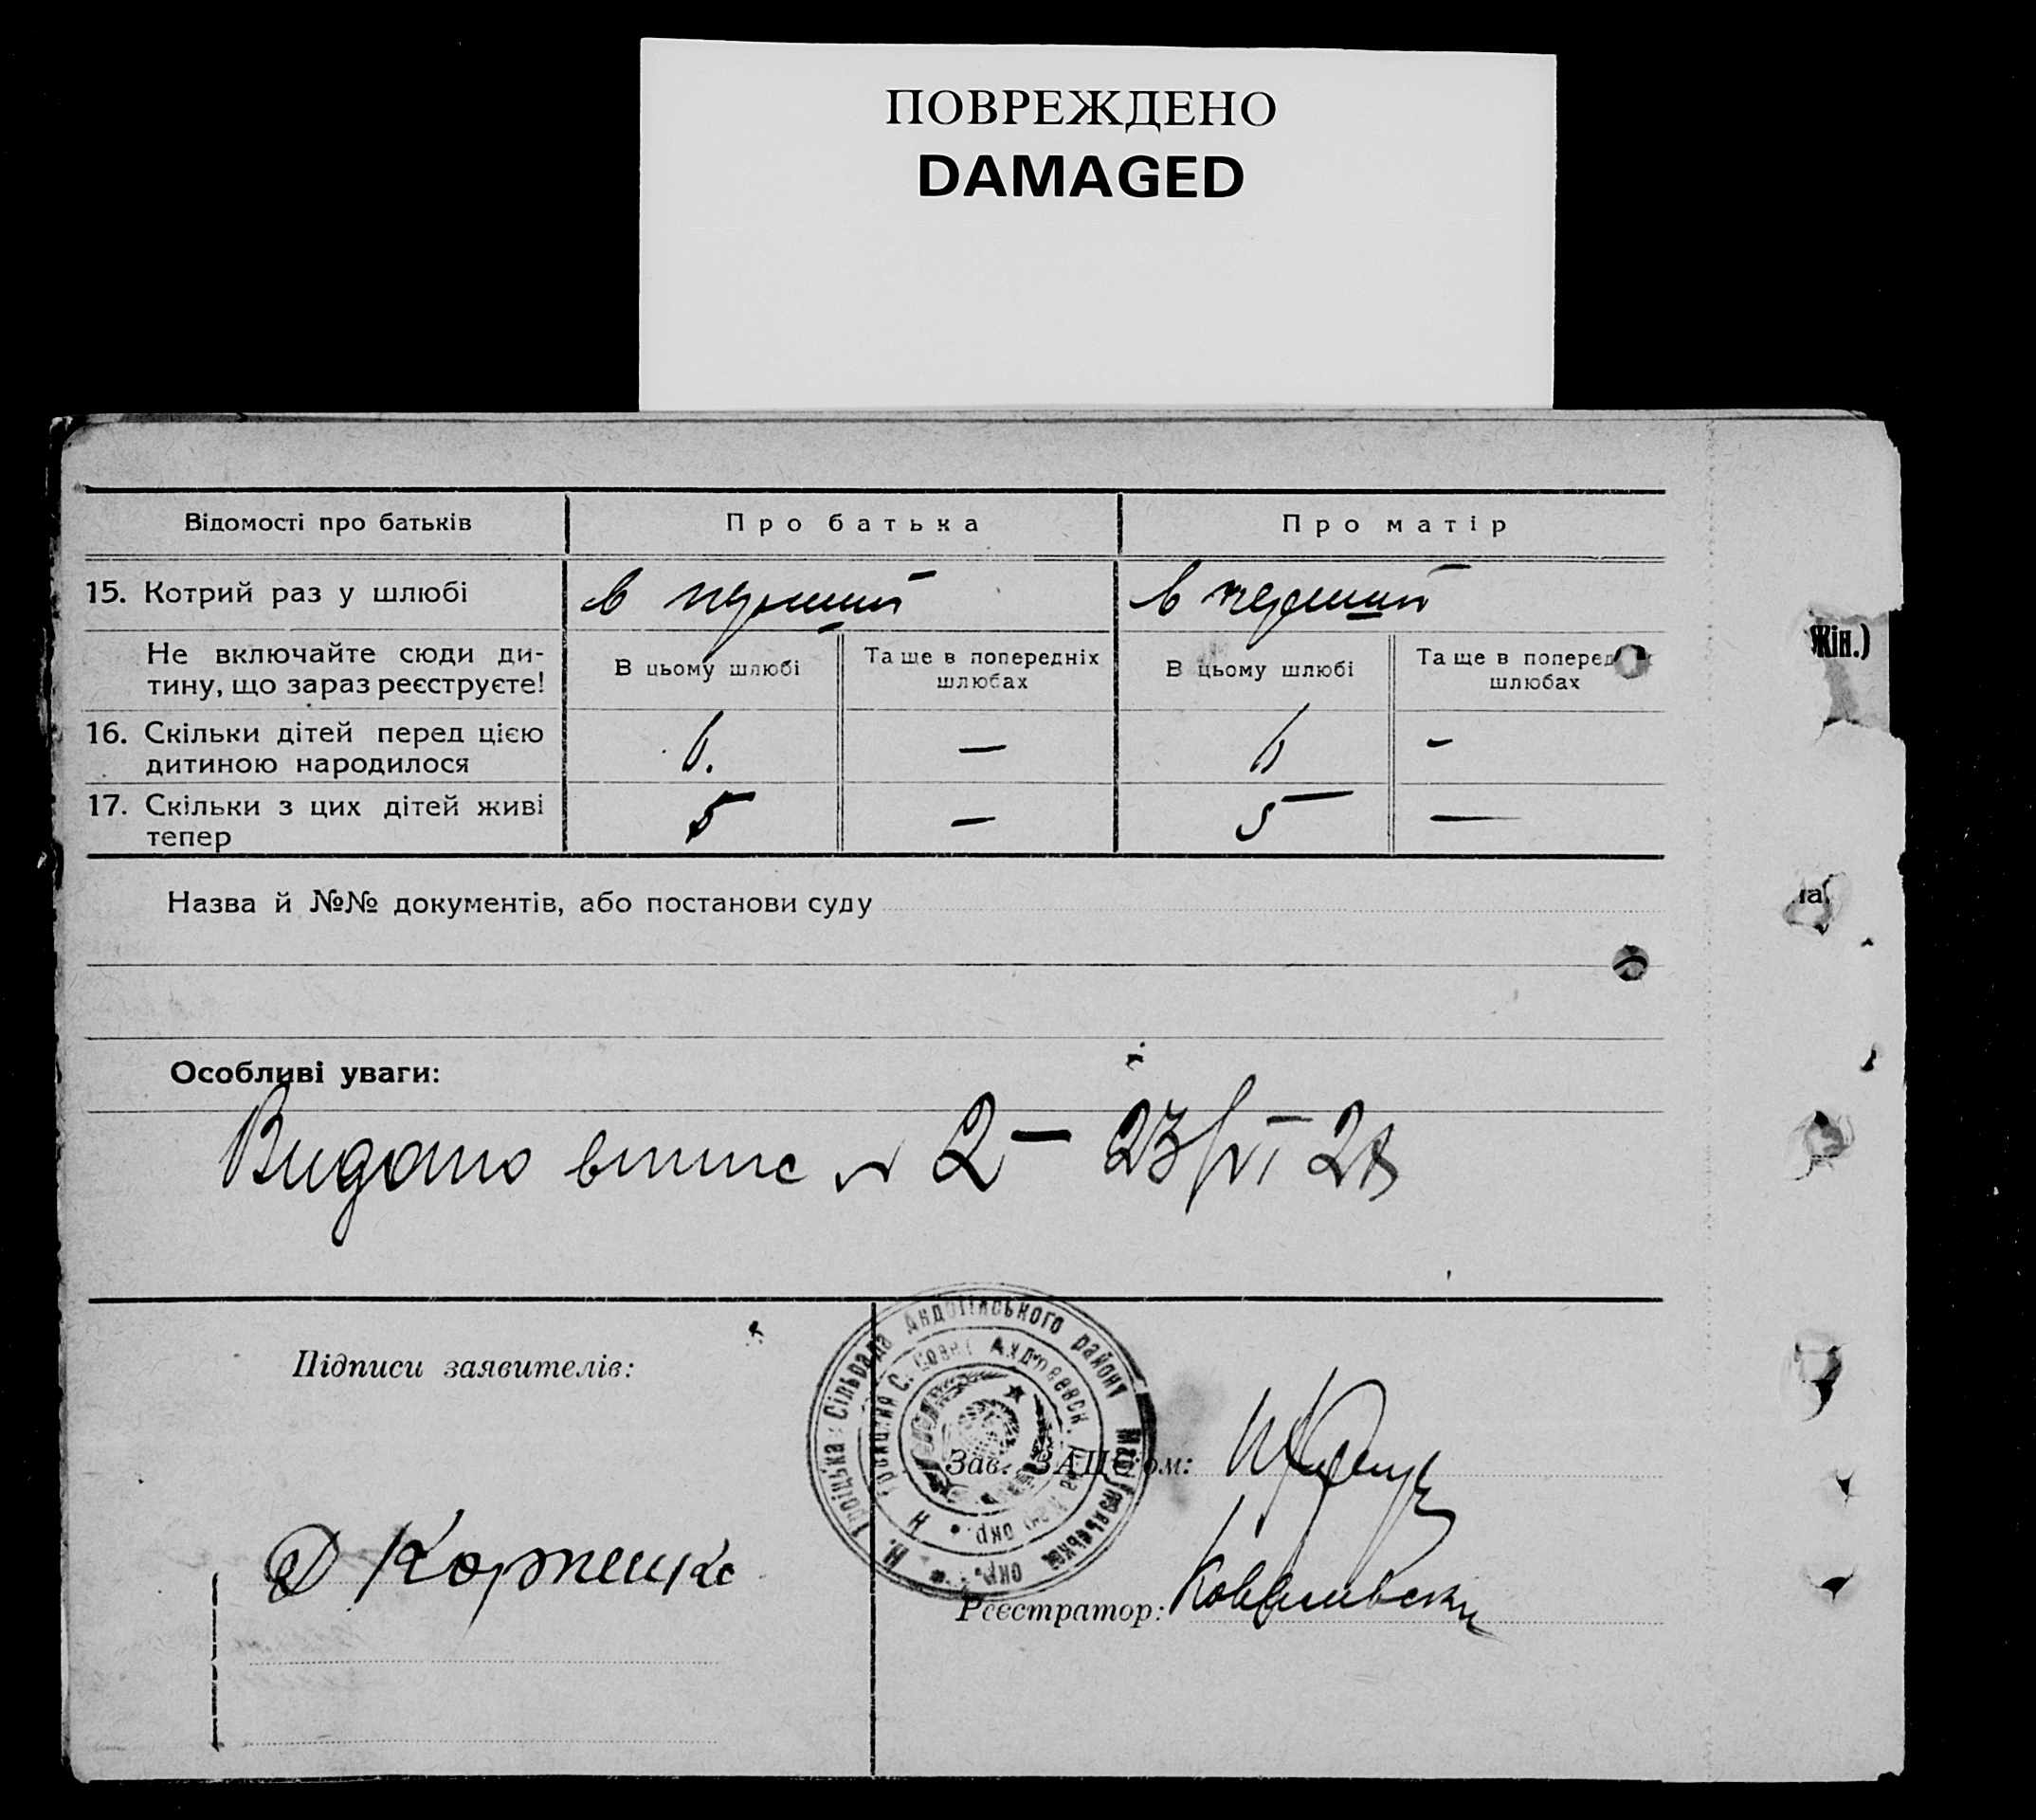 ПОВРЕЖДЕНО
DAMAGED
Відомості про батьків
Про батька
Про матір
15. Котрий раз у шлюбі
в перший
в перший
Не включайте сюди ди-
тину, що зараз реєструєте!
В цьому шлюбі
Та ще в попередніх
шлюбах
В цьому шлюбі
Та ще в поперед
шлюбах
16. Скільки дітей перед цією
дитиною народилося
6.
—
6
-
17. Скільки з цих дітей живі
тепер
5
—
5
—
Назва й №№ документів, або постанови суду
Особливі уваги:
Видано випис № 2 — 23/VI 28
Підписи заявителів:
Зав. ЗАГС'ом:
Реєстратор:
Сільрада
району
окр.
жін.)